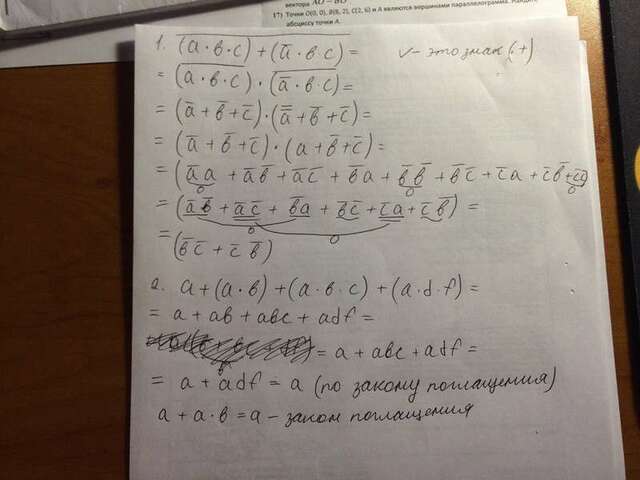 вектора AO − BO
17) Точки O(0, 0), B(8, 2), C(2, 6) и A являются вершинами параллелограмма. Найдите
абсциссу точки A.
1. \overline{(a·в·c) + (\overline{a}·в·c)} = v – это знак (+)
= \overline{(a·в·c)} · \overline{(\overline{a}·в·c)} =
= (\overline{a}+\overline{в}+\overline{c})·(\overline{\overline{a}}+\overline{в}+\overline{c}) =
= (\overline{a}+\overline{в}+\overline{c})·(a+\overline{в}+\overline{c}) =
= (\overline{a}a + \overline{a}\overline{в} + \overline{a}\overline{c} + \overline{в}a + \overline{в}\overline{в} + \overline{в}\overline{c} + \overline{c}a + \overline{c}\overline{в} + \overline{c}\overline{c})
0 0 0
= (\overline{a}\overline{в} + \overline{a}\overline{c} + \overline{в}a + \overline{в}\overline{c} + \overline{c}a + \overline{c}\overline{в}) =
0 0
= (\overline{в}\overline{c} + \overline{c}\overline{в})
2. a+(a·в)+(a·в·c)+(a·d·f) =
= a + aв + aвc + adf =
= a + aвc + adf =
= a + adf = a (по закону поглащения)
a + a·в = a – закон поглащения